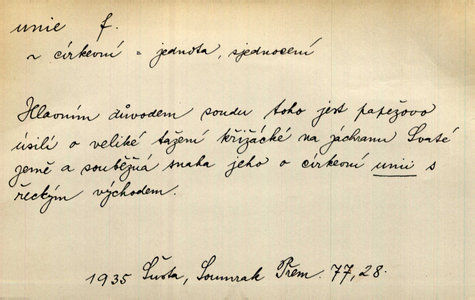 unie f.
~ církevní = jednota, sjednocení
Hlavním důvodem soudu toho jest papežovo
úsilí o veliké tažení křižácké na záchranu Svaté
země a souběžná snaha jeho o církevní unii s
řeckým východem.
1935 Šusta, Soumrak Přem. 77, 28.